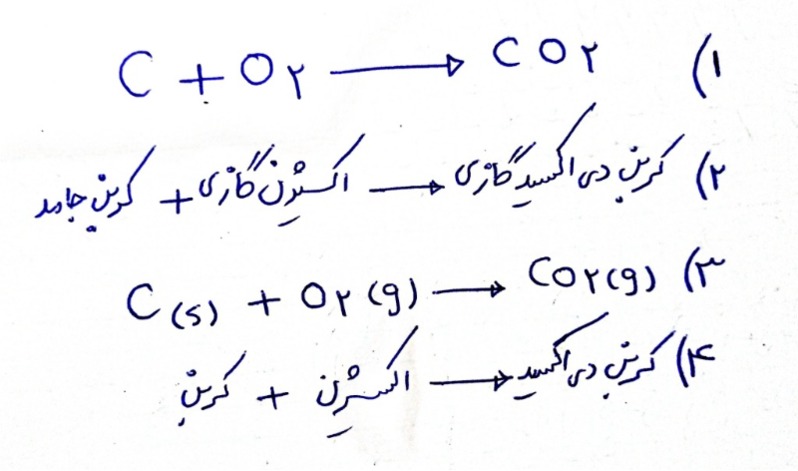 ۱) C + O۲ → CO۲
۲) کربن جامد + اکسیژن گازی → کربن دی اکسید گازی
۳) C(s) + O۲(g) → CO۲(g)
۴) کربن + اکسیژن → کربن دی اکسید